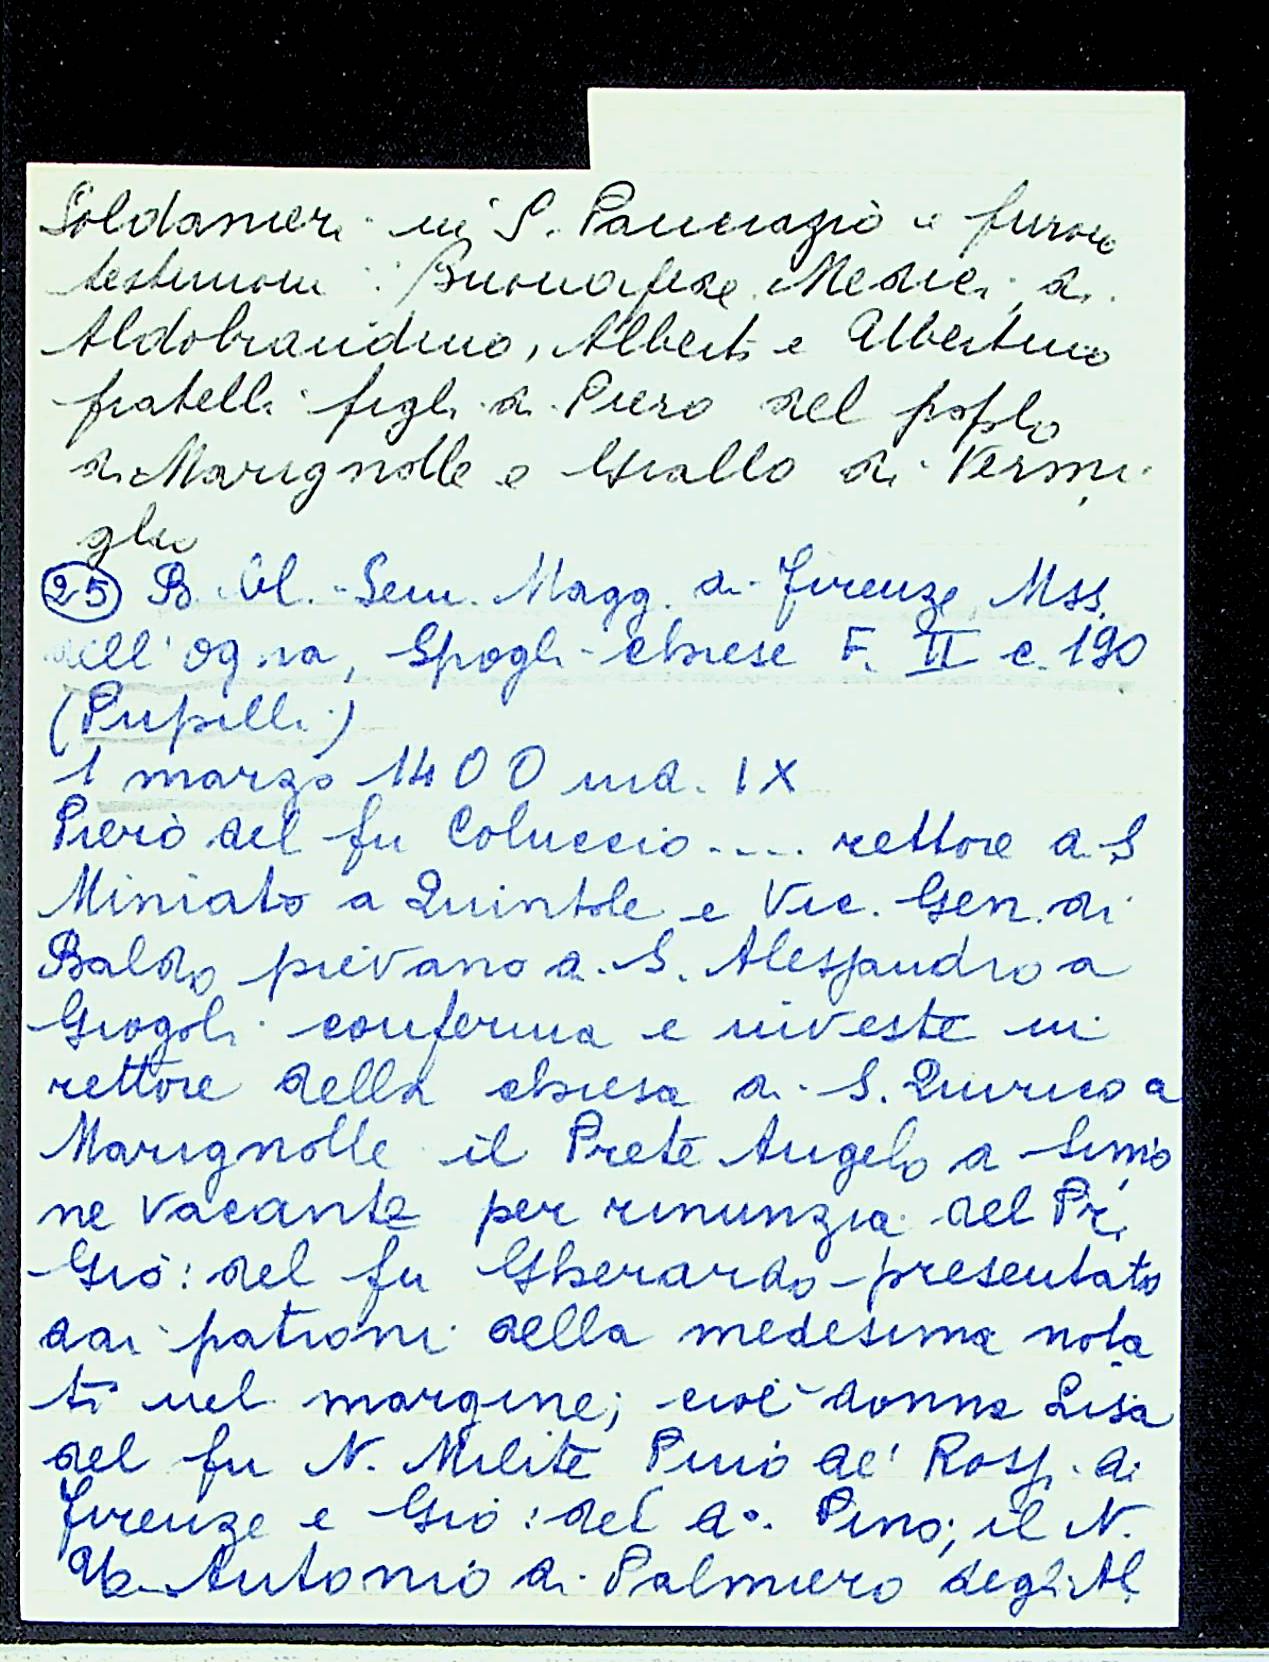 Soldanieri in S. Pancrazio e furono
testimoni: Buonafede Medici, di
Aldobrandino, Alberto e Albertino
fratelli figli di Piero del popolo
di Marignolle e Giallo di Vermi
glio
(25) Bibl. Sem. Magg. di Firenze, Mss.
dell'Ogna, Spogli chiese F. II c. 190
(Pupilli)
1 marzo 1400 ind. IX
Piero del fu Coluccio .... rettore a S
Miniato a Quintole e Vic. Gen. di
Baldo pievano a. S. Alessandro a
Giogoli conferma e investe in
rettore della chiesa di S. Quirico a
Marignolle il Prete Angelo di Simo
ne vacante per rinunzia del Pr.
Gio: del fu Gherardo presentato
dai patroni della medesima nota
ti nel margine; cioè donna Lisa
del fu N. Milite Pino de' Rossi di
Firenze e Gio: del do. Pino; il N.
Antonio di Palmiero degli Al